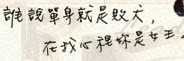 誰說單身就是敗犬,
在我心裡妳是女王.